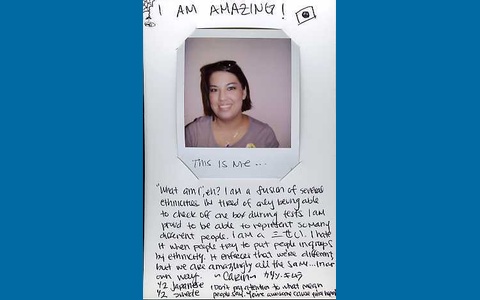 I AM AMAZING!
THIS IS ME...
"What am I", eh? I am a fusion of several
ethnicities. I'm tired of only being able
to check off one box during tests. I am
proud to be able to represent so many
different people. I am a 三世(!). I hate
it when people try to put people in groups
by ethnicity. It enforces that we're different
but we are amazingly all the same...in our
own way.
1/2 Japanese
1/2
I don't pay attention to what mean
people say. You're awesome cause you're